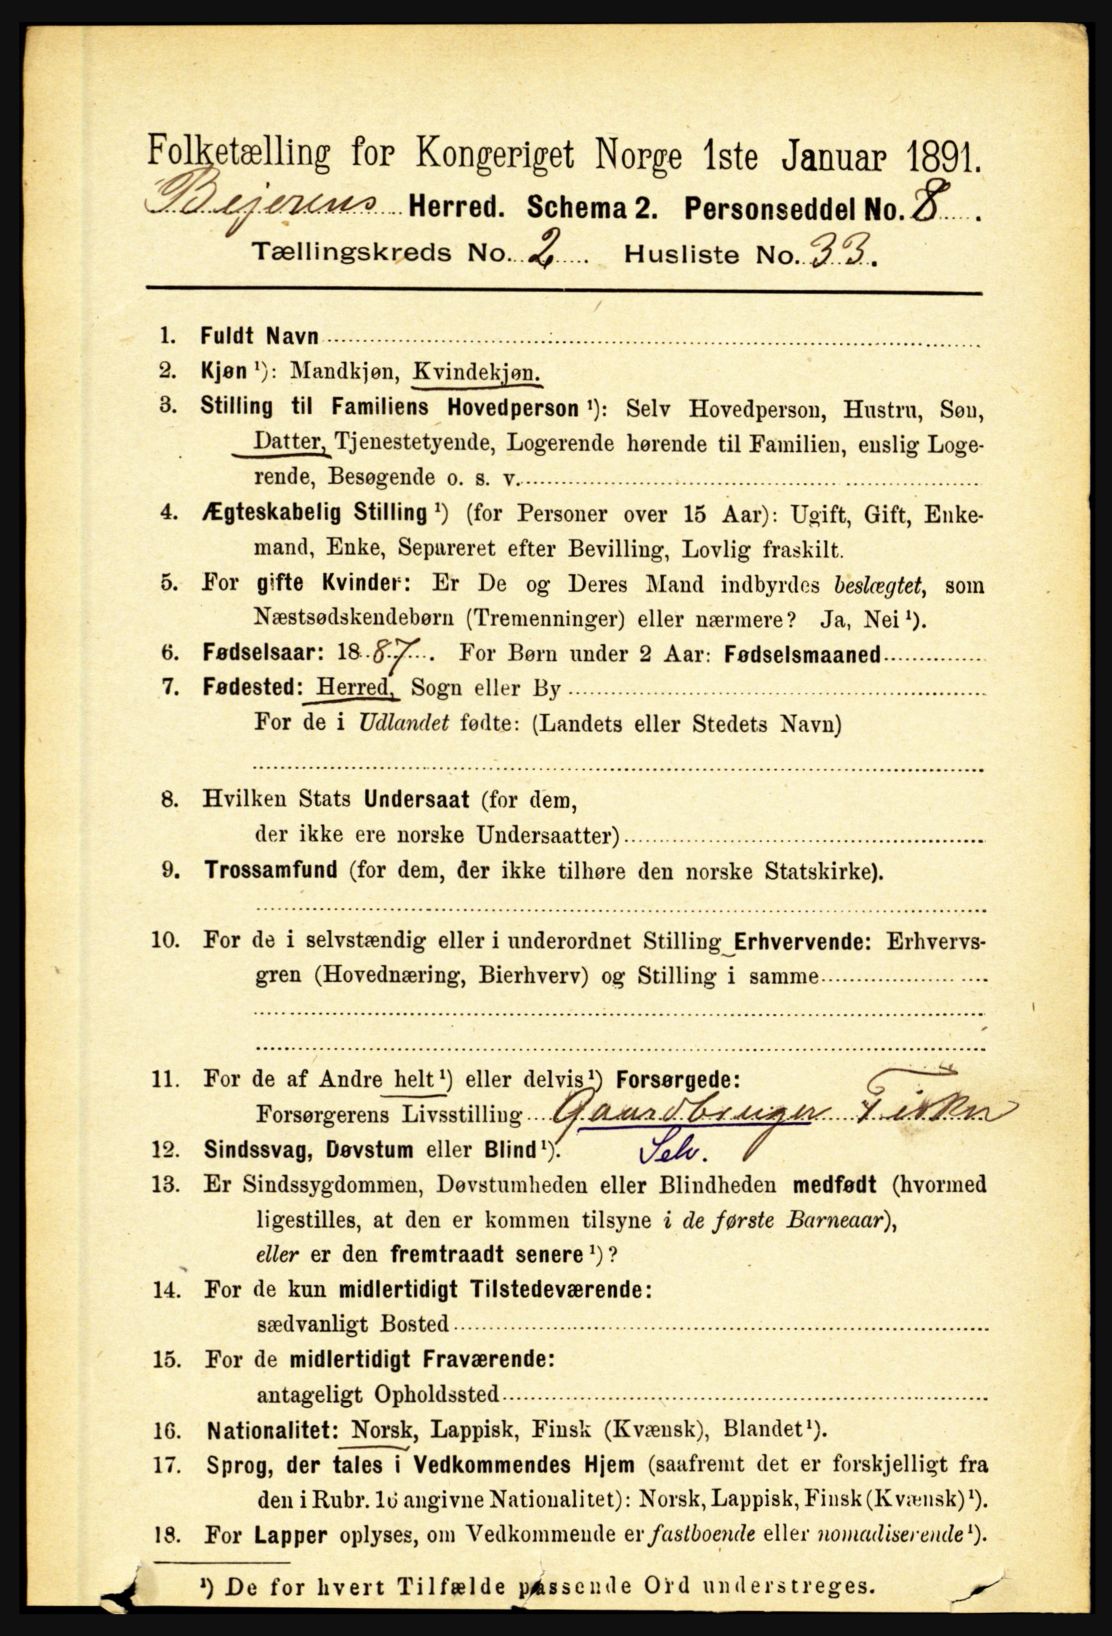 Folketælling for Kongeriget Norge 1ste Januar 1891.
Bejerens Herred. Schema 2. Personseddel No. 8.
Tællingskreds No. 2. Husliste No. 33.
1. Fuldt Navn
2. Kjøn ¹): Mandkjøn, Kvindekjøn.
3. Stilling til Familiens Hovedperson ¹): Selv Hovedperson, Hustru, Søn,
Datter, Tjenestetyende, Logerende hørende til Familien, enslig Loge-
rende, Besøgende o. s. v.
4. Ægteskabelig Stilling ¹) (for Personer over 15 Aar): Ugift, Gift, Enke-
mand, Enke, Separeret efter Bevilling, Lovlig fraskilt.
5. For gifte Kvinder: Er De og Deres Mand indbyrdes beslægtet, som
Næstsødskendebørn (Tremenninger) eller nærmere? Ja, Nei ¹).
6. Fødselsaar: 1887. For Børn under 2 Aar: Fødselsmaaned
7. Fødested: Herred, Sogn eller By
For de i Udlandet fødte: (Landets eller Stedets Navn)
8. Hvilken Stats Undersaat (for dem,
der ikke ere norske Undersaatter)
9. Trossamfund (for dem, der ikke tilhøre den norske Statskirke).
10. For de i selvstændig eller i underordnet Stilling Erhvervende: Erhvervs-
gren (Hovednæring, Bierhverv) og Stilling i samme
11. For de af Andre helt ¹) eller delvis ¹) Forsørgede:
Forsørgerens Livsstilling Gaardbruger Fisker
12. Sindssvag, Døvstum eller Blind ¹). Selv.
13. Er Sindssygdommen, Døvstumheden eller Blindheden medfødt (hvormed
ligestilles, at den er kommen tilsyne i de første Barneaar),
eller er den fremtraadt senere ¹)?
14. For de kun midlertidigt Tilstedeværende:
sædvanligt Bosted
15. For de midlertidigt Fraværende:
antageligt Opholdssted
16. Nationalitet: Norsk, Lappisk, Finsk (Kvænsk), Blandet ¹).
17. Sprog, der tales i Vedkommendes Hjem (saafremt det er forskjelligt fra
den i Rubr. 16 angivne Nationalitet): Norsk, Lappisk, Finsk (Kvænsk) ¹).
18. For Lapper oplyses, om Vedkommende er fastboende eller nomadiserende ¹).
¹) De for hvert Tilfælde passende Ord understreges.